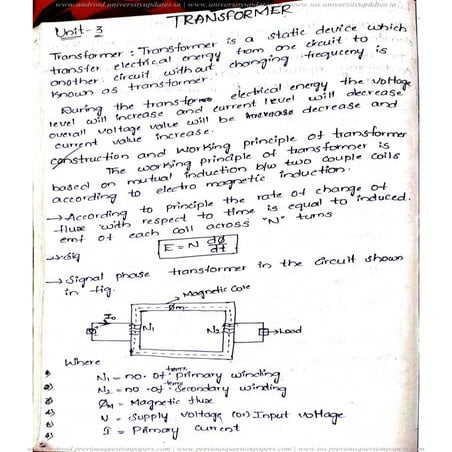 www.android.universityupdates.in | www.universityupdates.in | www.ios.universityupdates.in
TRANSFORMER
Unit-3
Transformer : Transformer is a static device which
transfer electrical energy from one circuit to
another circuit without changing frequceny is
known as transformer.
During the transfome electrical energy the voltage
level will increase and current level will decrease
overall voltage value will be decrease and
current value increase.
construction and working principle of transformer
The working principle of transformer is
based on mutual induction b/w two couple coils
according to electro magnetic induction.
→ According to principle the rate of change of
flux with respect to time is equal to induced.
emf of each coil across "N" turns
E = N dφ/dt
→ Signal phase transformer in the circuit shown
in fig.
Magnetic Core
φm
I0
N1
N2
Load
Where
N1 = no. of turns primary winding
N2 = no. of turns Secondary winding
φm = Magnetic flux
V = Supply voltage (or) Input voltage
I = Primary current
www.android.previousquestionpapers.com | www.previousquestionpapers.com | www.ios.previousquestionpapers.com